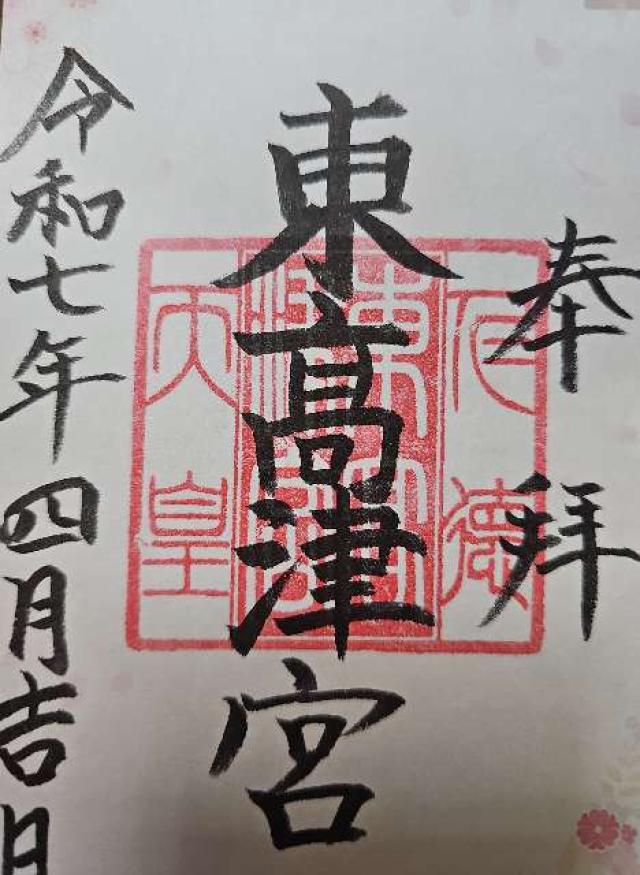 奉拝
東高津宮
仁徳
東高津宮
天皇
令和七年四月吉日